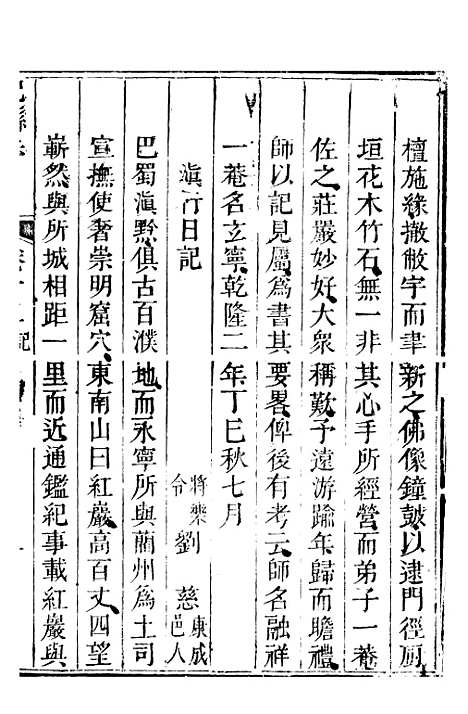 檀施緣撤敝宇而聿新之佛像鐘鼓以逮門徑厨
垣花木竹石無一非其心手所經營而弟子一菴
佐之莊嚴妙好大衆稱歎予遠游踰年歸而瞻禮
師以記見屬爲書其要畧俾後有考云師名融祥
一菴名立寧乾隆二年丁巳秋七月
滇行日記
將樂令劉慈康成邑人
巴蜀滇黔俱古百濮地而永寧所與藺州爲土司
宣撫使奢崇明窟穴東南山曰紅巖高百丈四望
嶄然與所城相距一里而近通鑑紀事載紅巖與